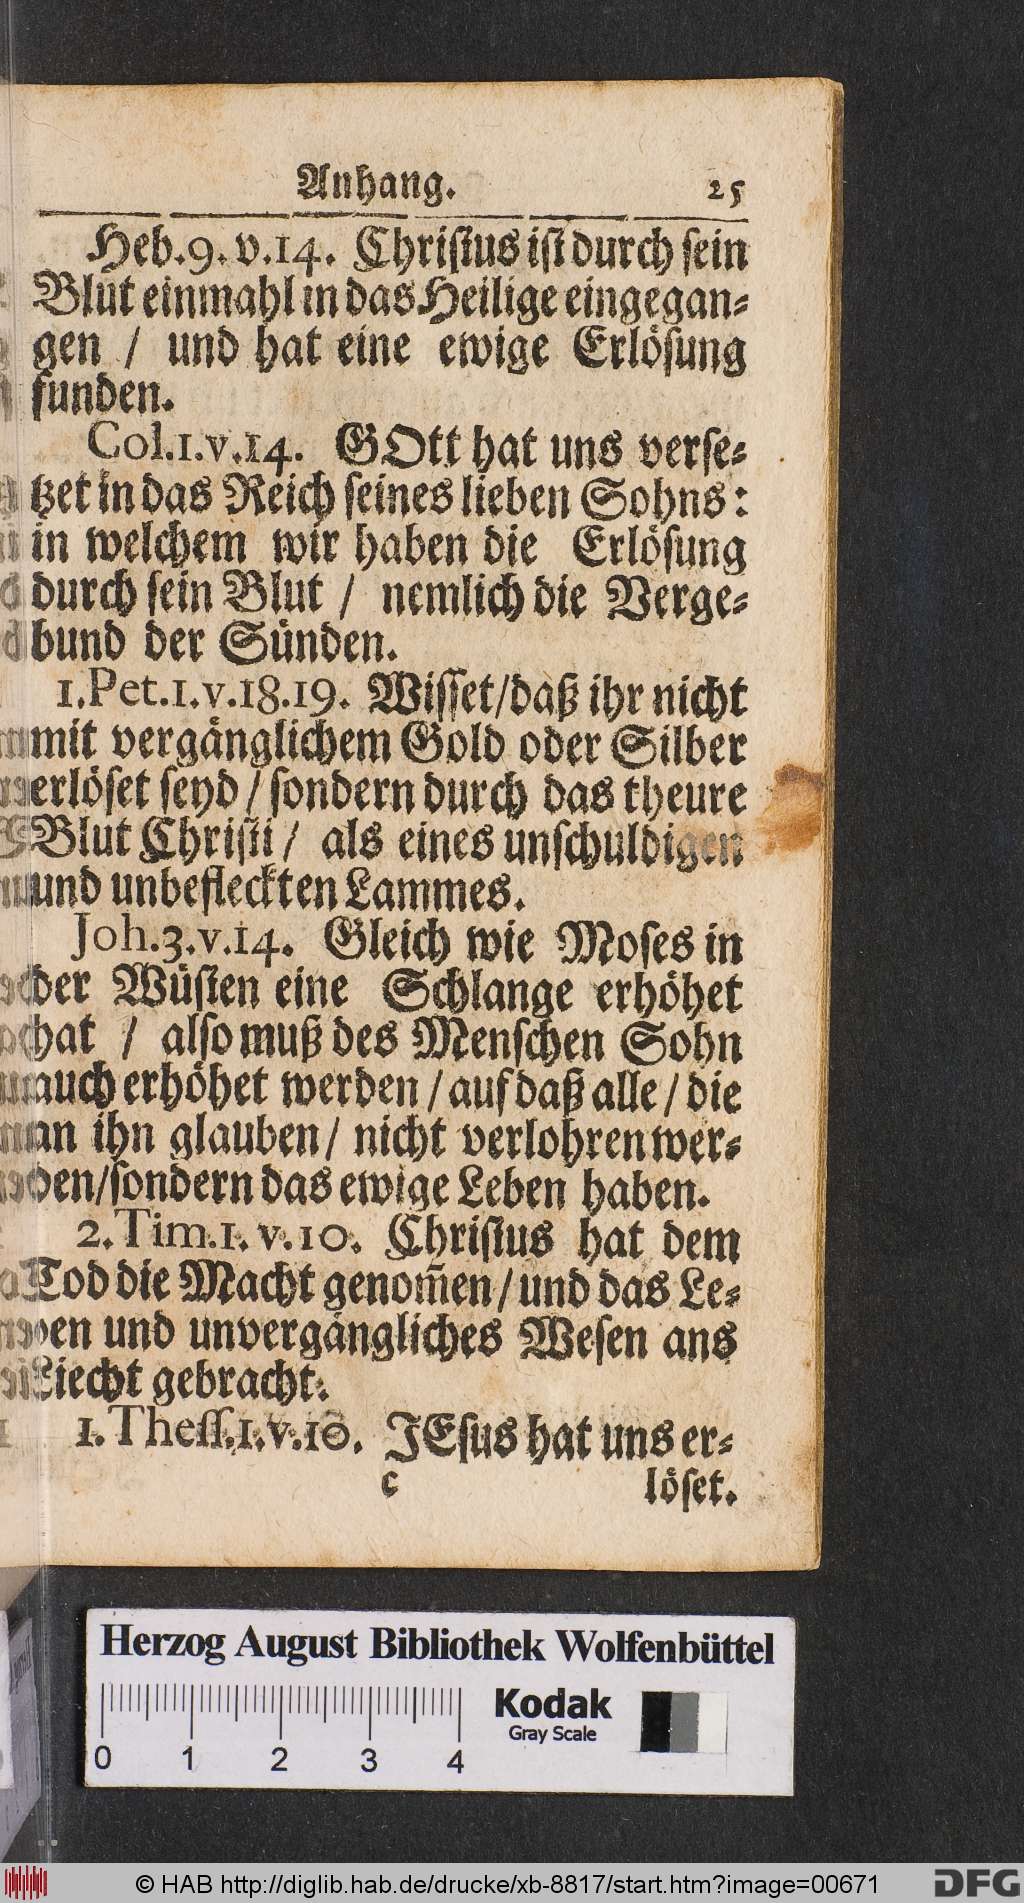 Anhang. 25
Heb. 9. v. 14. Christus ist durch sein
Blut einmahl in das Heilige eingegan-
gen / und hat eine ewige Erlösung
funden.
Col. 1. v. 14. GOtt hat uns verse-
tzet in das Reich seines lieben Sohns:
in welchem wir haben die Erlösung
durch sein Blut / nemlich die Verge-
bund der Sünden.
1. Pet. 1. v. 18. 19. Wisset / daß ihr nicht
mit vergänglichem Gold oder Silber
erlöset seyd / sondern durch das theure
Blut Christi / als eines unschuldigen
und unbefleckten Lammes.
Joh. 3. v. 14. Gleich wie Moses in
der Wüsten eine Schlange erhöhet
hat / also muß des Menschen Sohn
auch erhöhet werden / auf daß alle / die
an ihn glauben / nicht verlohren wer-
den / sondern das ewige Leben haben.
2. Tim. 1. v. 10. Christus hat dem
Tod die Macht genom̃en / und das Le-
ben und unvergängliches Wesen ans
Liecht gebracht.
1. Thess. 1. v. 10. JEsus hat uns er-
c löset.
Herzog August Bibliothek Wolfenbüttel
Kodak
Gray Scale
0 1 2 3 4
© HAB http://diglib.hab.de/drucke/xb-8817/start.htm?image=00671
DFG